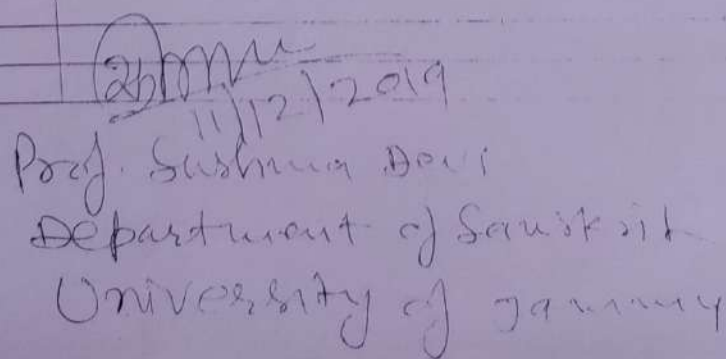 11/12/2019
Prof. Sushma Devi
Department of Sanskrit
University of Jammu